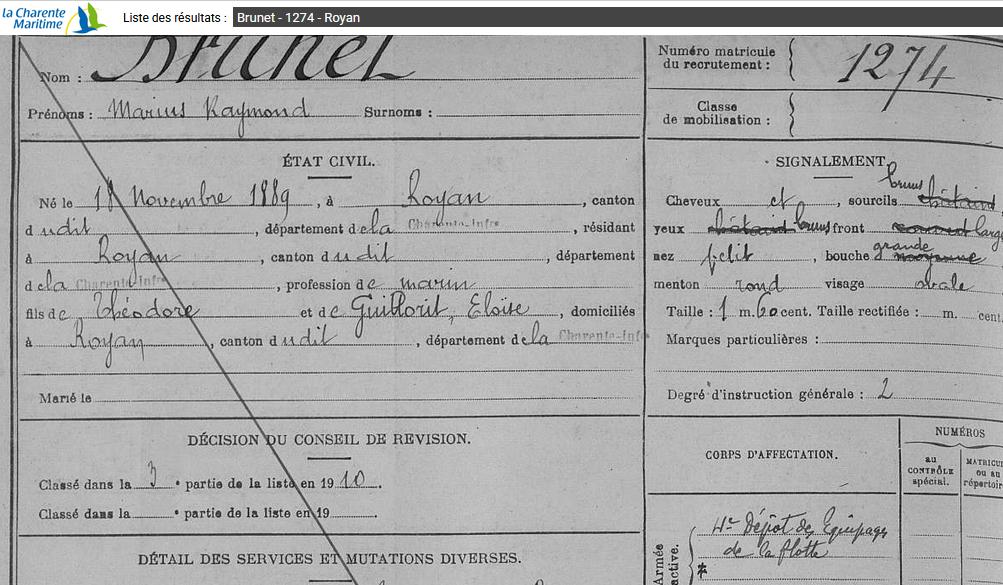 la Charente
Maritime
Liste des résultats : Brunet - 1274 - Royan
Nom : Brunet
Prénoms : Marius Raymond Surnoms :
Numéro matricule
du recrutement : 1274
Classe
de mobilisation :
ÉTAT CIVIL.
Né le 18 Novembre 1889, à Royan, canton
d udit, département de la Charente-Infre, résidant
à Royan, canton d udit, département
de la Charente-Infre, profession de marin
fils de Théodore et de Guillorit, Eloïse, domiciliés
à Royan, canton d udit, département de la Charente-Infre
Marié le
SIGNALEMENT.
bruns
Cheveux et, sourcils châtaind
yeux châtaind bruns front large
grande
nez petit, bouche moyenne
menton rond visage ovale
Taille : 1 m. 60 cent. Taille rectifiée : m. cent.
Marques particulières :
Degré d'instruction générale : 2
DÉCISION DU CONSEIL DE REVISION.
Classé dans la 3e partie de la liste en 1910.
Classé dans la e partie de la liste en 19
DÉTAIL DES SERVICES ET MUTATIONS DIVERSES.
CORPS D'AFFECTATION.
NUMÉROS
au
CONTRÔLE
spécial.
MATRICU
ou au
répertoir
Armée
active.
4e Dépôt des Equipages
de la flotte